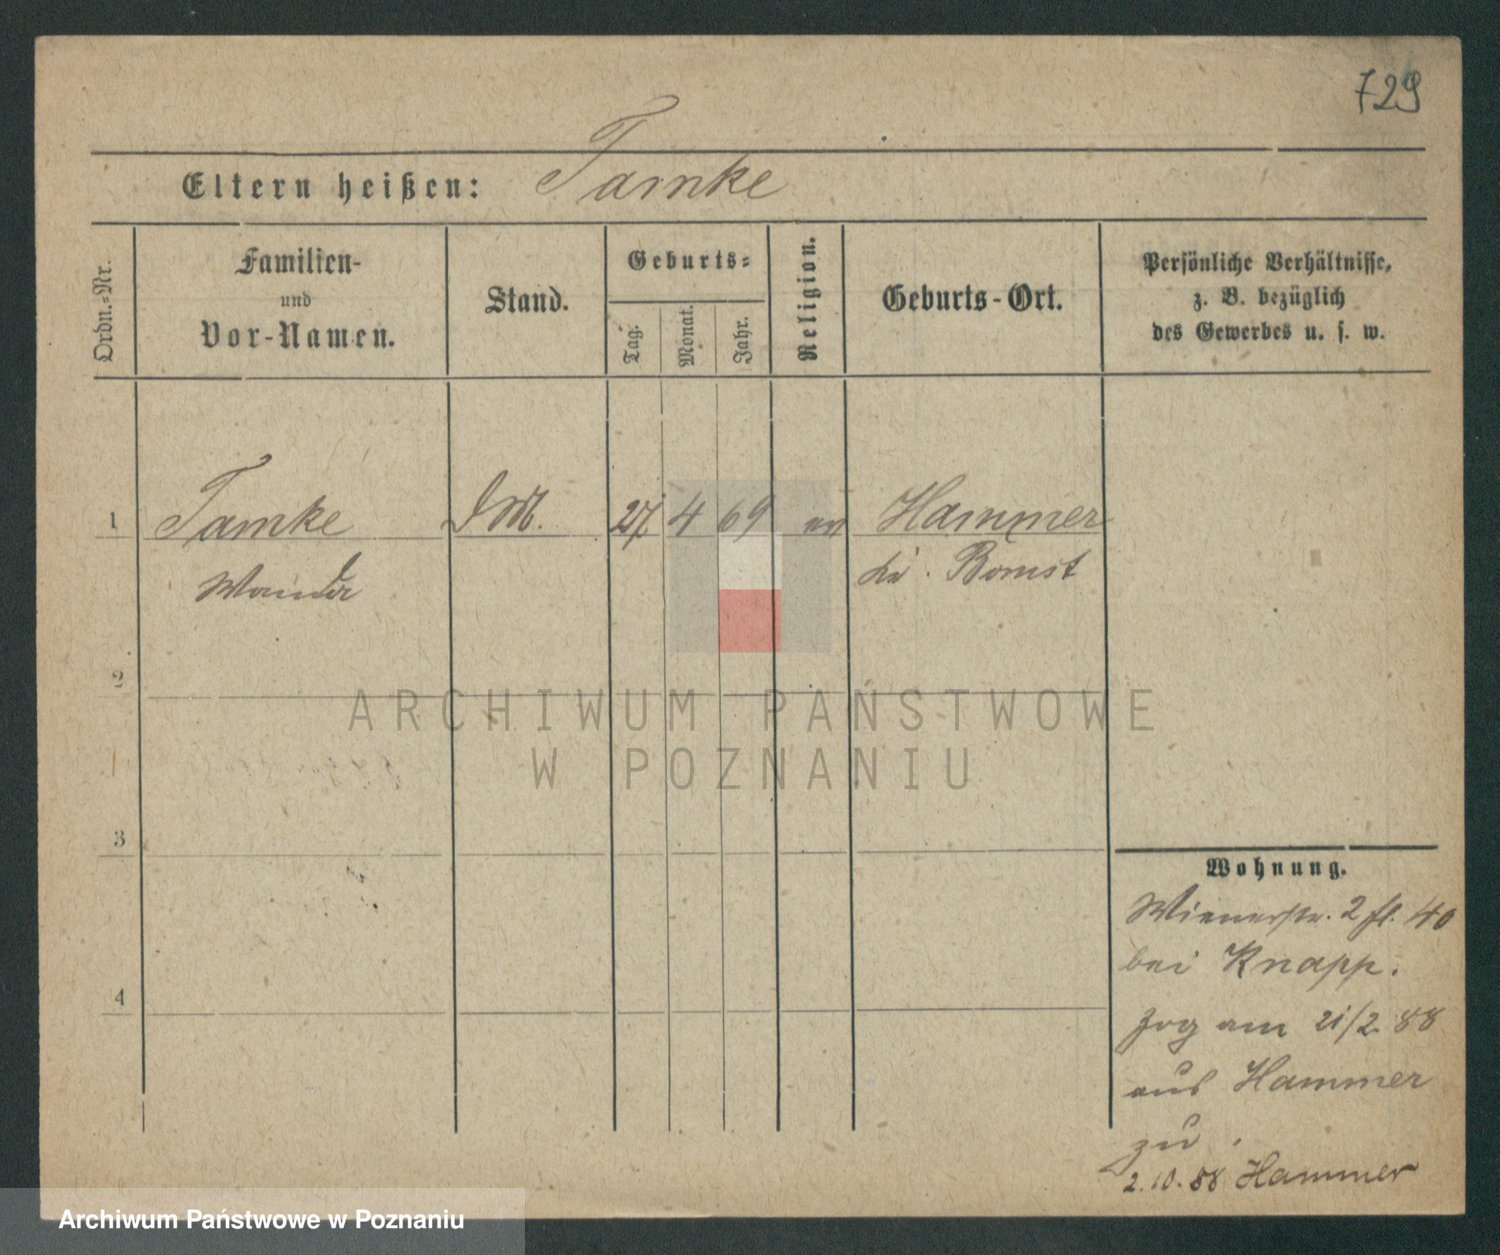 729
Eltern heißen: Tamke
Ordn.-Nr.
Familien-
und
Vor-Namen.
Stand.
Geburts-
Tag.
Monat.
Jahr.
Religion.
Geburts-Ort.
Persönliche Verhältnisse,
z. B. bezüglich
des Gewerbes u. s. w.
1 Tamke 27. 4 69 ev Hammer
Wanda Bomst
2
3
4
Wohnung.
Wienerstr. 2 fl. 40
bei Knapp.
zog am 21/2 88
aus Hammer
zu.
2.10.88 Hammer
ARCHIWUM PAŃSTWOWE
W POZNANIU
Archiwum Państwowe w Poznaniu